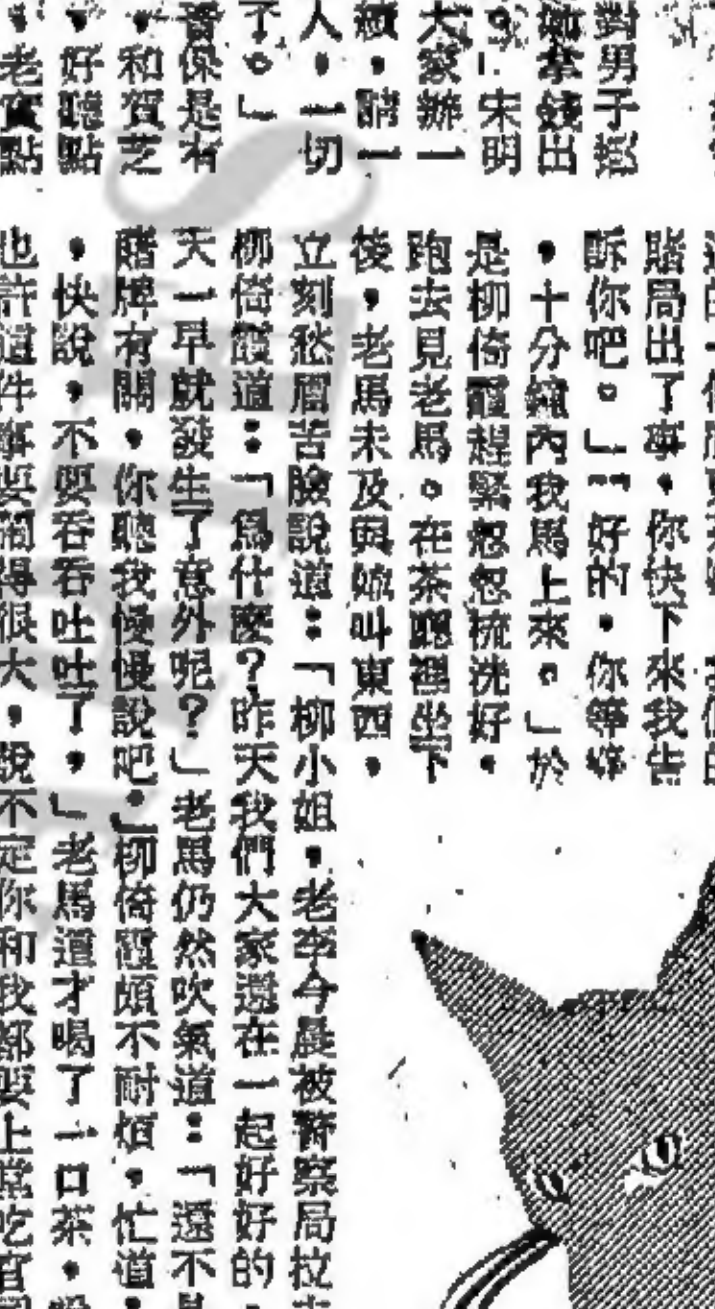 對男子挺
她拿錢出
。」宋明
大家辦一
,請一
人,一切
了。」
係是有
,和賀芝
,好聽點
,老實點
賭局出了事,你快下來我告
訴你吧。」「好的,你等等
,十分鐘內我馬上來。」於
是柳倚霞趕緊忽忽梳洗好,
跑去見老馬。在茶廳裡坐下
後,老馬未及與她叫東西,
立刻愁眉苦臉說道:「柳小姐,老李今晨被警察局拉
柳倚霞道:「爲什麼?昨天我們大家還在一起好好的,
天一早就發生了意外呢?」老馬仍然吹氣道:「還不是
賭牌有關,你聽我慢慢說吧。」柳倚霞頗不耐煩,忙道:
,快說,不要吞吞吐吐了。」老馬這才喝了一口茶,
也許這件事要鬧得很大,說不定你和我都要上堂吃官